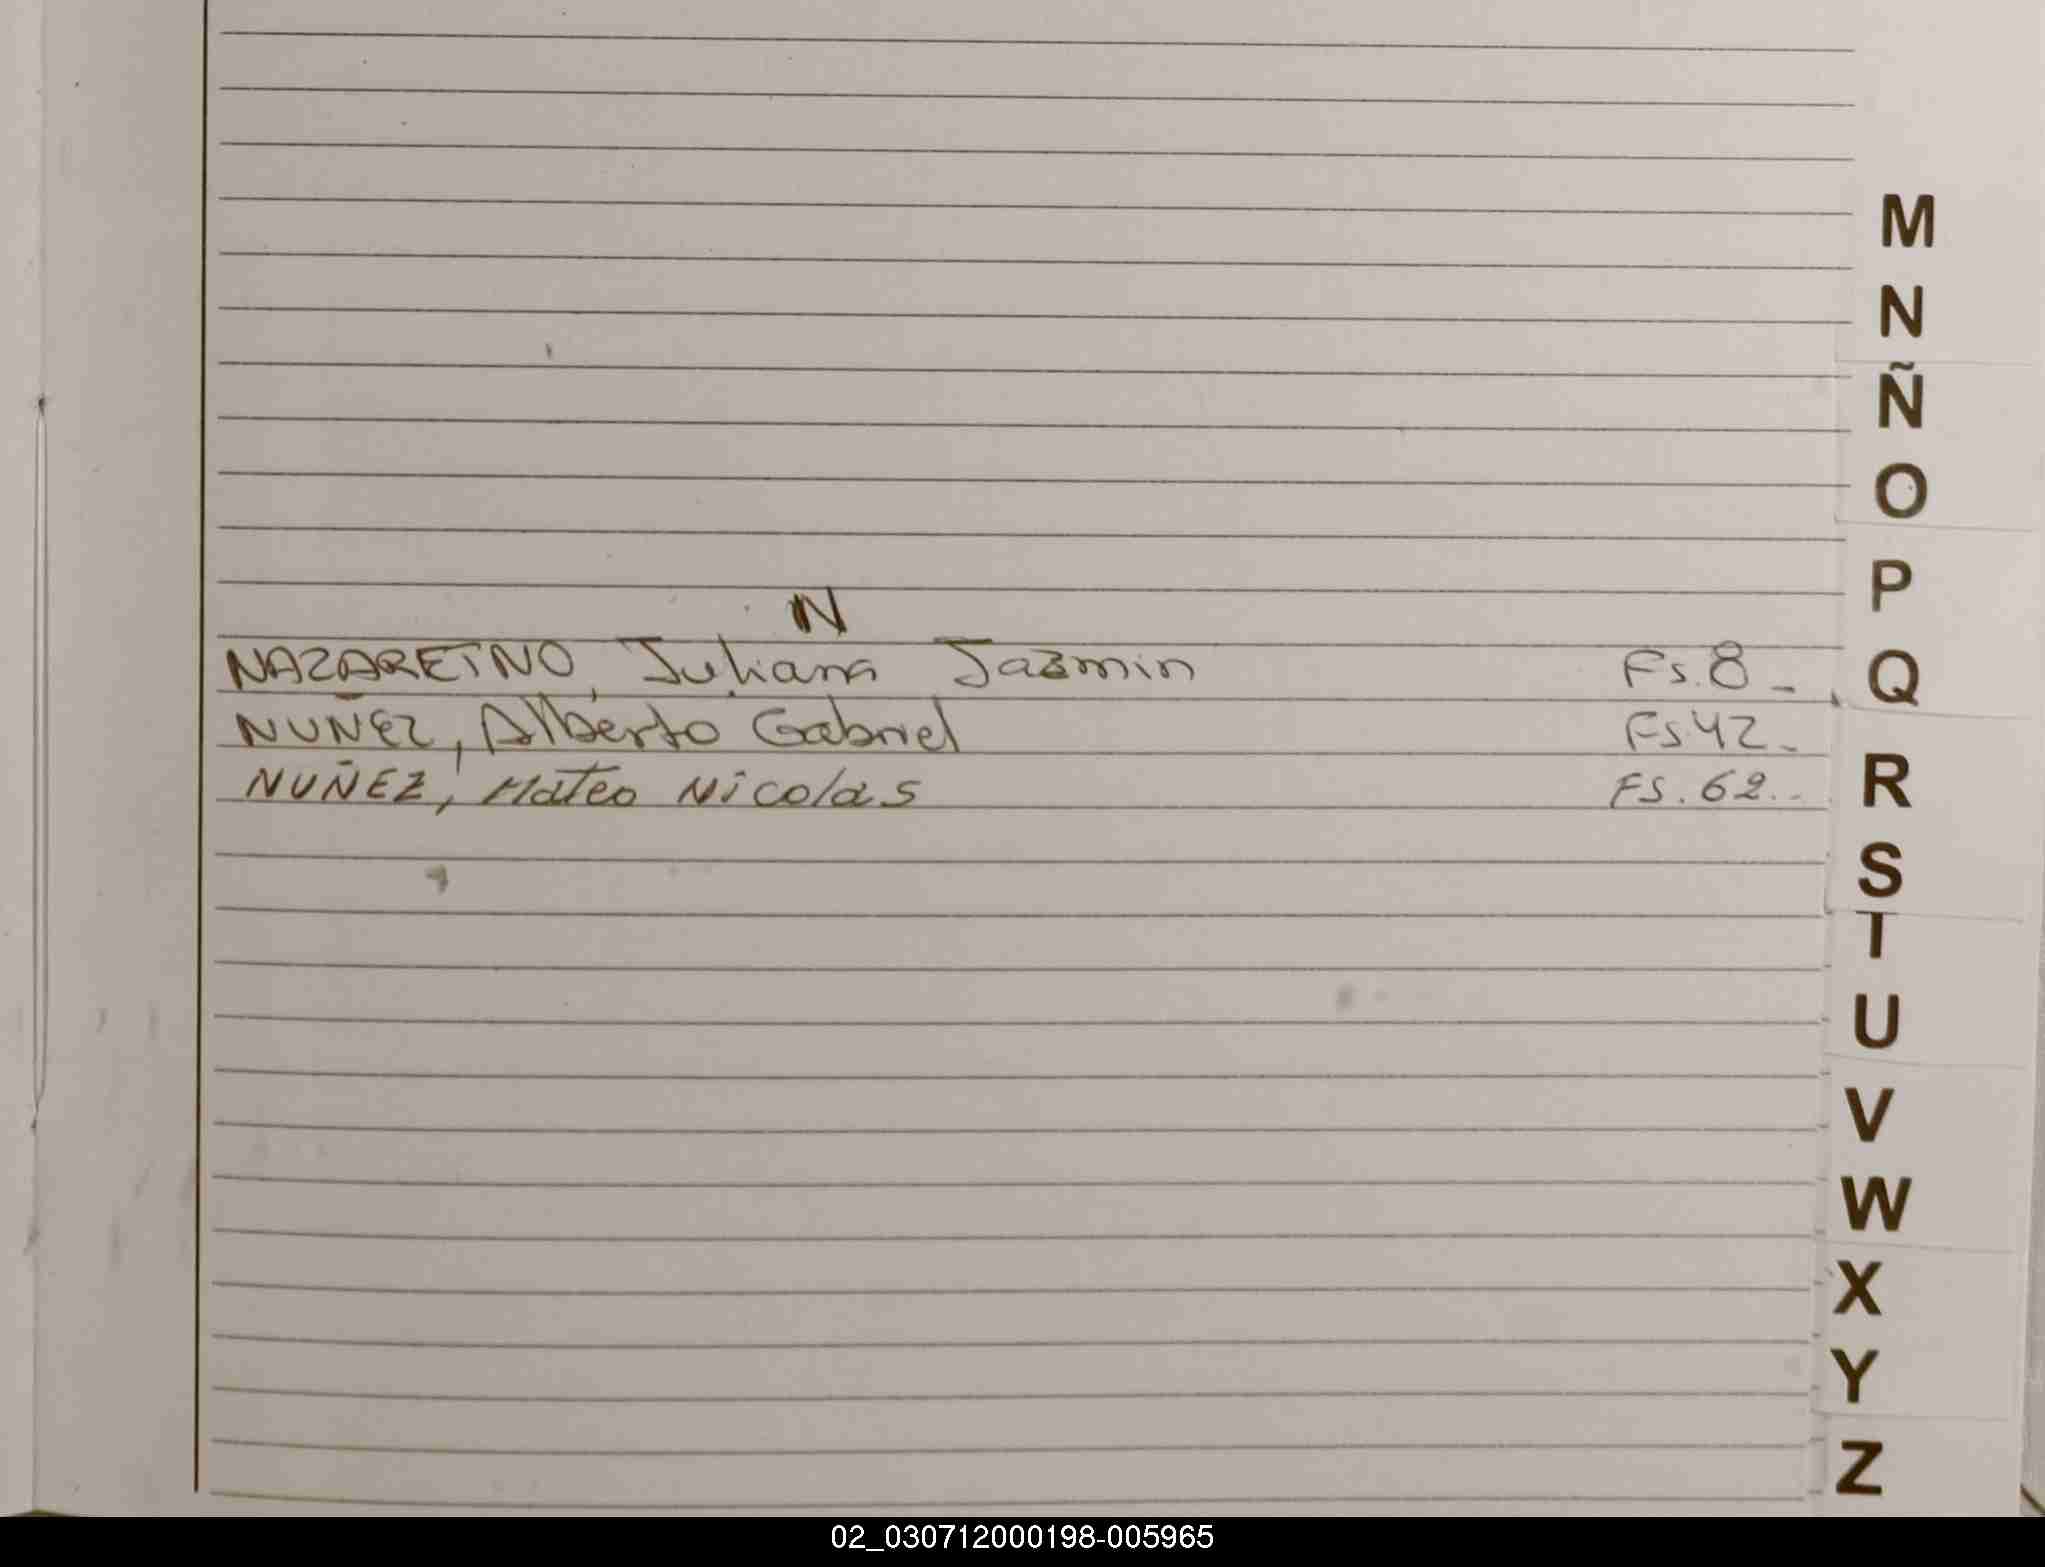 N
NAZARETNO, Juliana Jazmin Fs.8_
NUÑEZ, Alberto Gabriel Fs42_
NUÑEZ, Mateo Nicolas FS.62..
M
N
Ñ
O
P
Q
R
S
T
U
V
W
X
Y
Z
02_030712000198-005965